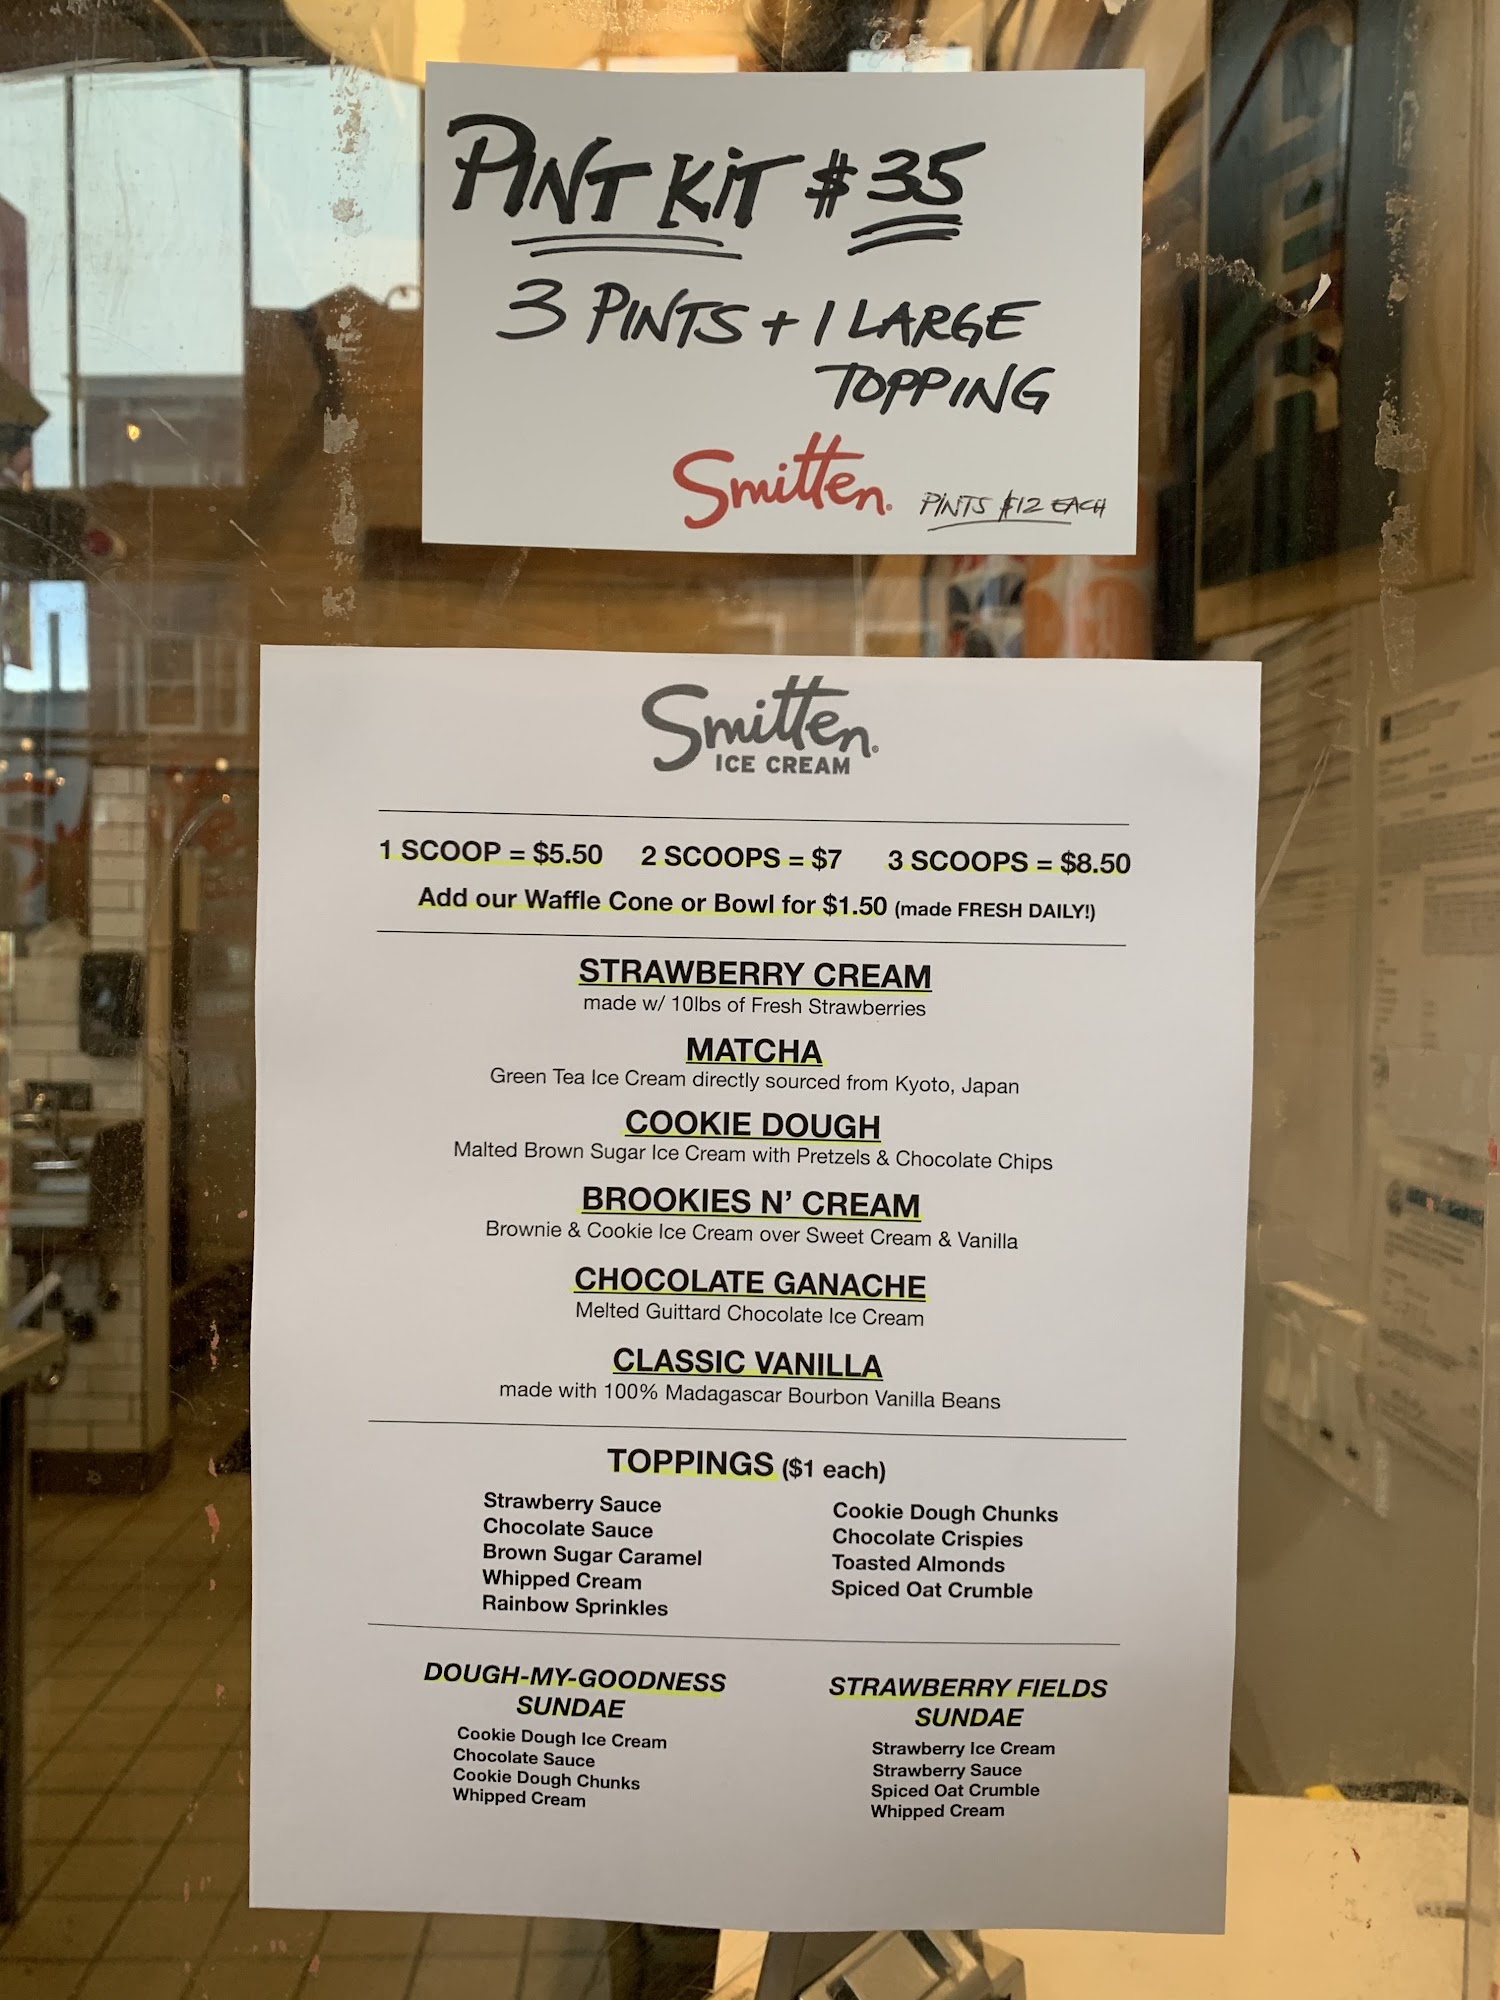 PINT KIT $35
3 PINTS + 1 LARGE
TOPPING
Smitten®
PINTS $12 EACH
Smitten®
ICE CREAM
1 SCOOP = $5.50 2 SCOOPS = $7 3 SCOOPS = $8.50
Add our Waffle Cone or Bowl for $1.50 (made FRESH DAILY!)
STRAWBERRY CREAM
made w/ 10lbs of Fresh Strawberries
MATCHA
Green Tea Ice Cream directly sourced from Kyoto, Japan
COOKIE DOUGH
Malted Brown Sugar Ice Cream with Pretzels & Chocolate Chips
BROOKIES N’ CREAM
Brownie & Cookie Ice Cream over Sweet Cream & Vanilla
CHOCOLATE GANACHE
Melted Guittard Chocolate Ice Cream
CLASSIC VANILLA
made with 100% Madagascar Bourbon Vanilla Beans
TOPPINGS ($1 each)
Strawberry Sauce
Chocolate Sauce
Brown Sugar Caramel
Whipped Cream
Rainbow Sprinkles
Cookie Dough Chunks
Chocolate Crispies
Toasted Almonds
Spiced Oat Crumble
DOUGH-MY-GOODNESS
SUNDAE
Cookie Dough Ice Cream
Chocolate Sauce
Cookie Dough Chunks
Whipped Cream
STRAWBERRY FIELDS
SUNDAE
Strawberry Ice Cream
Strawberry Sauce
Spiced Oat Crumble
Whipped Cream